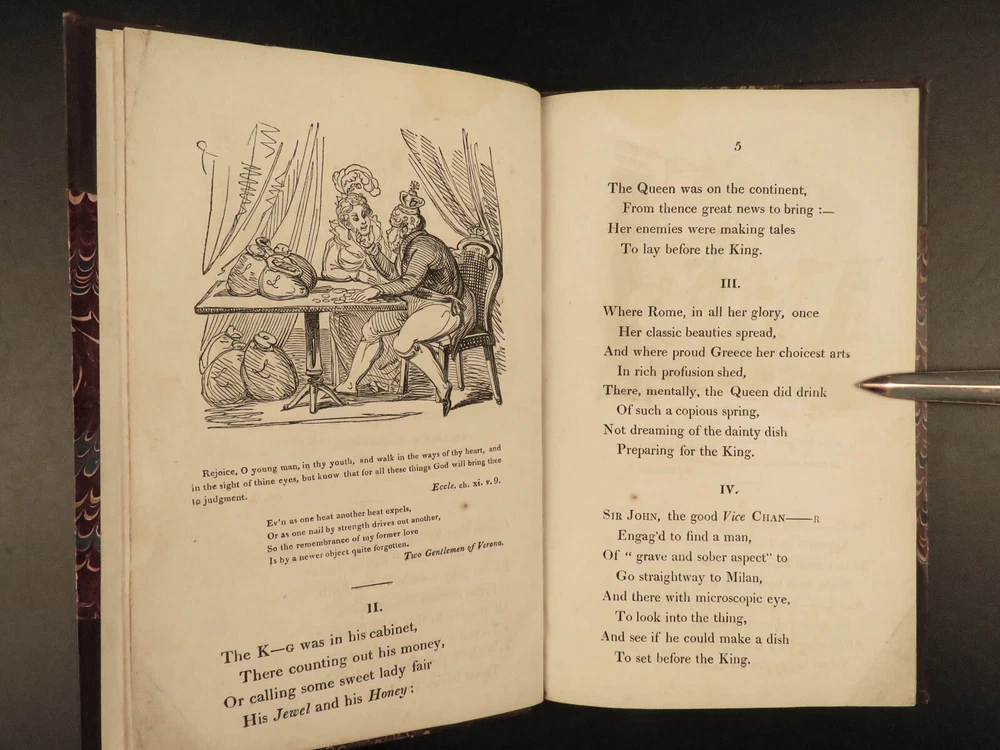 Rejoice, O young man, in thy youth, and walk in the ways of thy heart, and
in the sight of thine eyes, but know that for all these things God will bring thee
to judgment.
Eccle. ch. xi. v. 9.
Ev'n as one heat another heat expels,
Or as one nail by strength drives out another,
So the remembrance of my former love
Is by a newer object quite forgotten.
Two Gentlemen of Verona.
II.
The K—G was in his cabinet,
There counting out his money,
Or calling some sweet lady fair
His Jewel and his Honey:
5
The Queen was on the continent,
From thence great news to bring :—
Her enemies were making tales
To lay before the King.
III.
Where Rome, in all her glory, once
Her classic beauties spread,
And where proud Greece her choicest arts
In rich profusion shed,
There, mentally, the Queen did drink
Of such a copious spring,
Not dreaming of the dainty dish
Preparing for the King.
IV.
SIR JOHN, the good Vice CHAN——R
Engag'd to find a man,
Of “ grave and sober aspect” to
Go straightway to Milan,
And there with microscopic eye,
To look into the thing,
And see if he could make a dish
To set before the King.